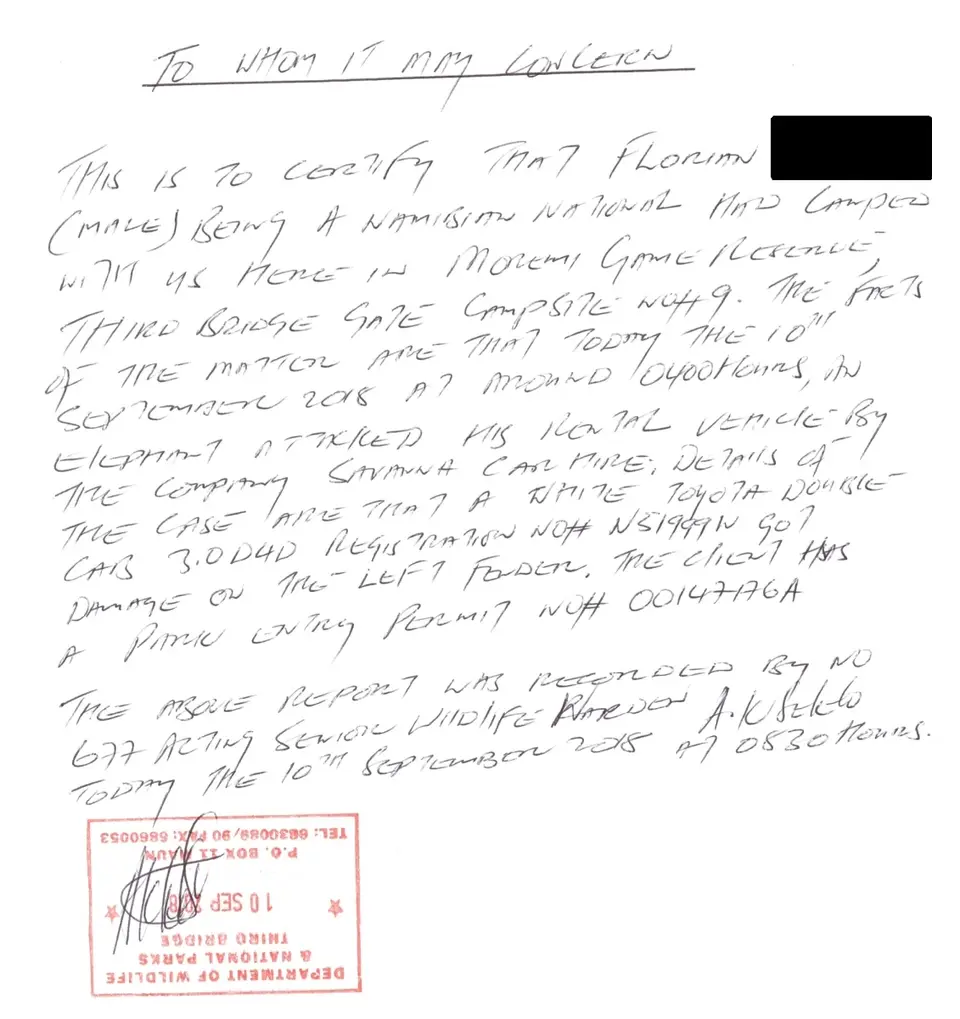 TO WHOM IT MAY CONCERN
THIS IS TO CERTIFY THAT FLORIAN
(MALE) BEING A NAMIBIAN NATIONAL HAD CAMPED
WITH US HERE IN MOREMI GAME RESERVE,
THIRD BRIDGE GATE CAMPSITE NO# 9. THE FACTS
OF THE MATTER ARE THAT TODAY THE 10TH
SEPTEMBER 2018 AT AROUND 0400HOURS, AN
ELEPHANT ATTACKED HIS RENTAL VEHICLE BY
THE COMPANY SAVANNA CAR HIRE. DETAILS OF
THE CASE ARE THAT A WHITE TOYOTA DOUBLE
CAB 3.0 D4D REGISTRATION NO# N51999W GOT
DAMAGE ON THE LEFT FENDER. THE CLIENT HAS
A PARK ENTRY PERMIT NO# 0014776A
THE ABOVE REPORT WAS RECORDED BY NO
677 ACTING SENIOR WILDLIFE WARDEN A.
TODAY THE 10TH SEPTEMBER 2018 AT 0530HOURS.
DEPARTMENT OF WILDLIFE
& NATIONAL PARKS
THIRD BRIDGE
10 SEP 2018
P.O. BOX 11 MAUN
TEL: 6830089/90 FAX: 6860053